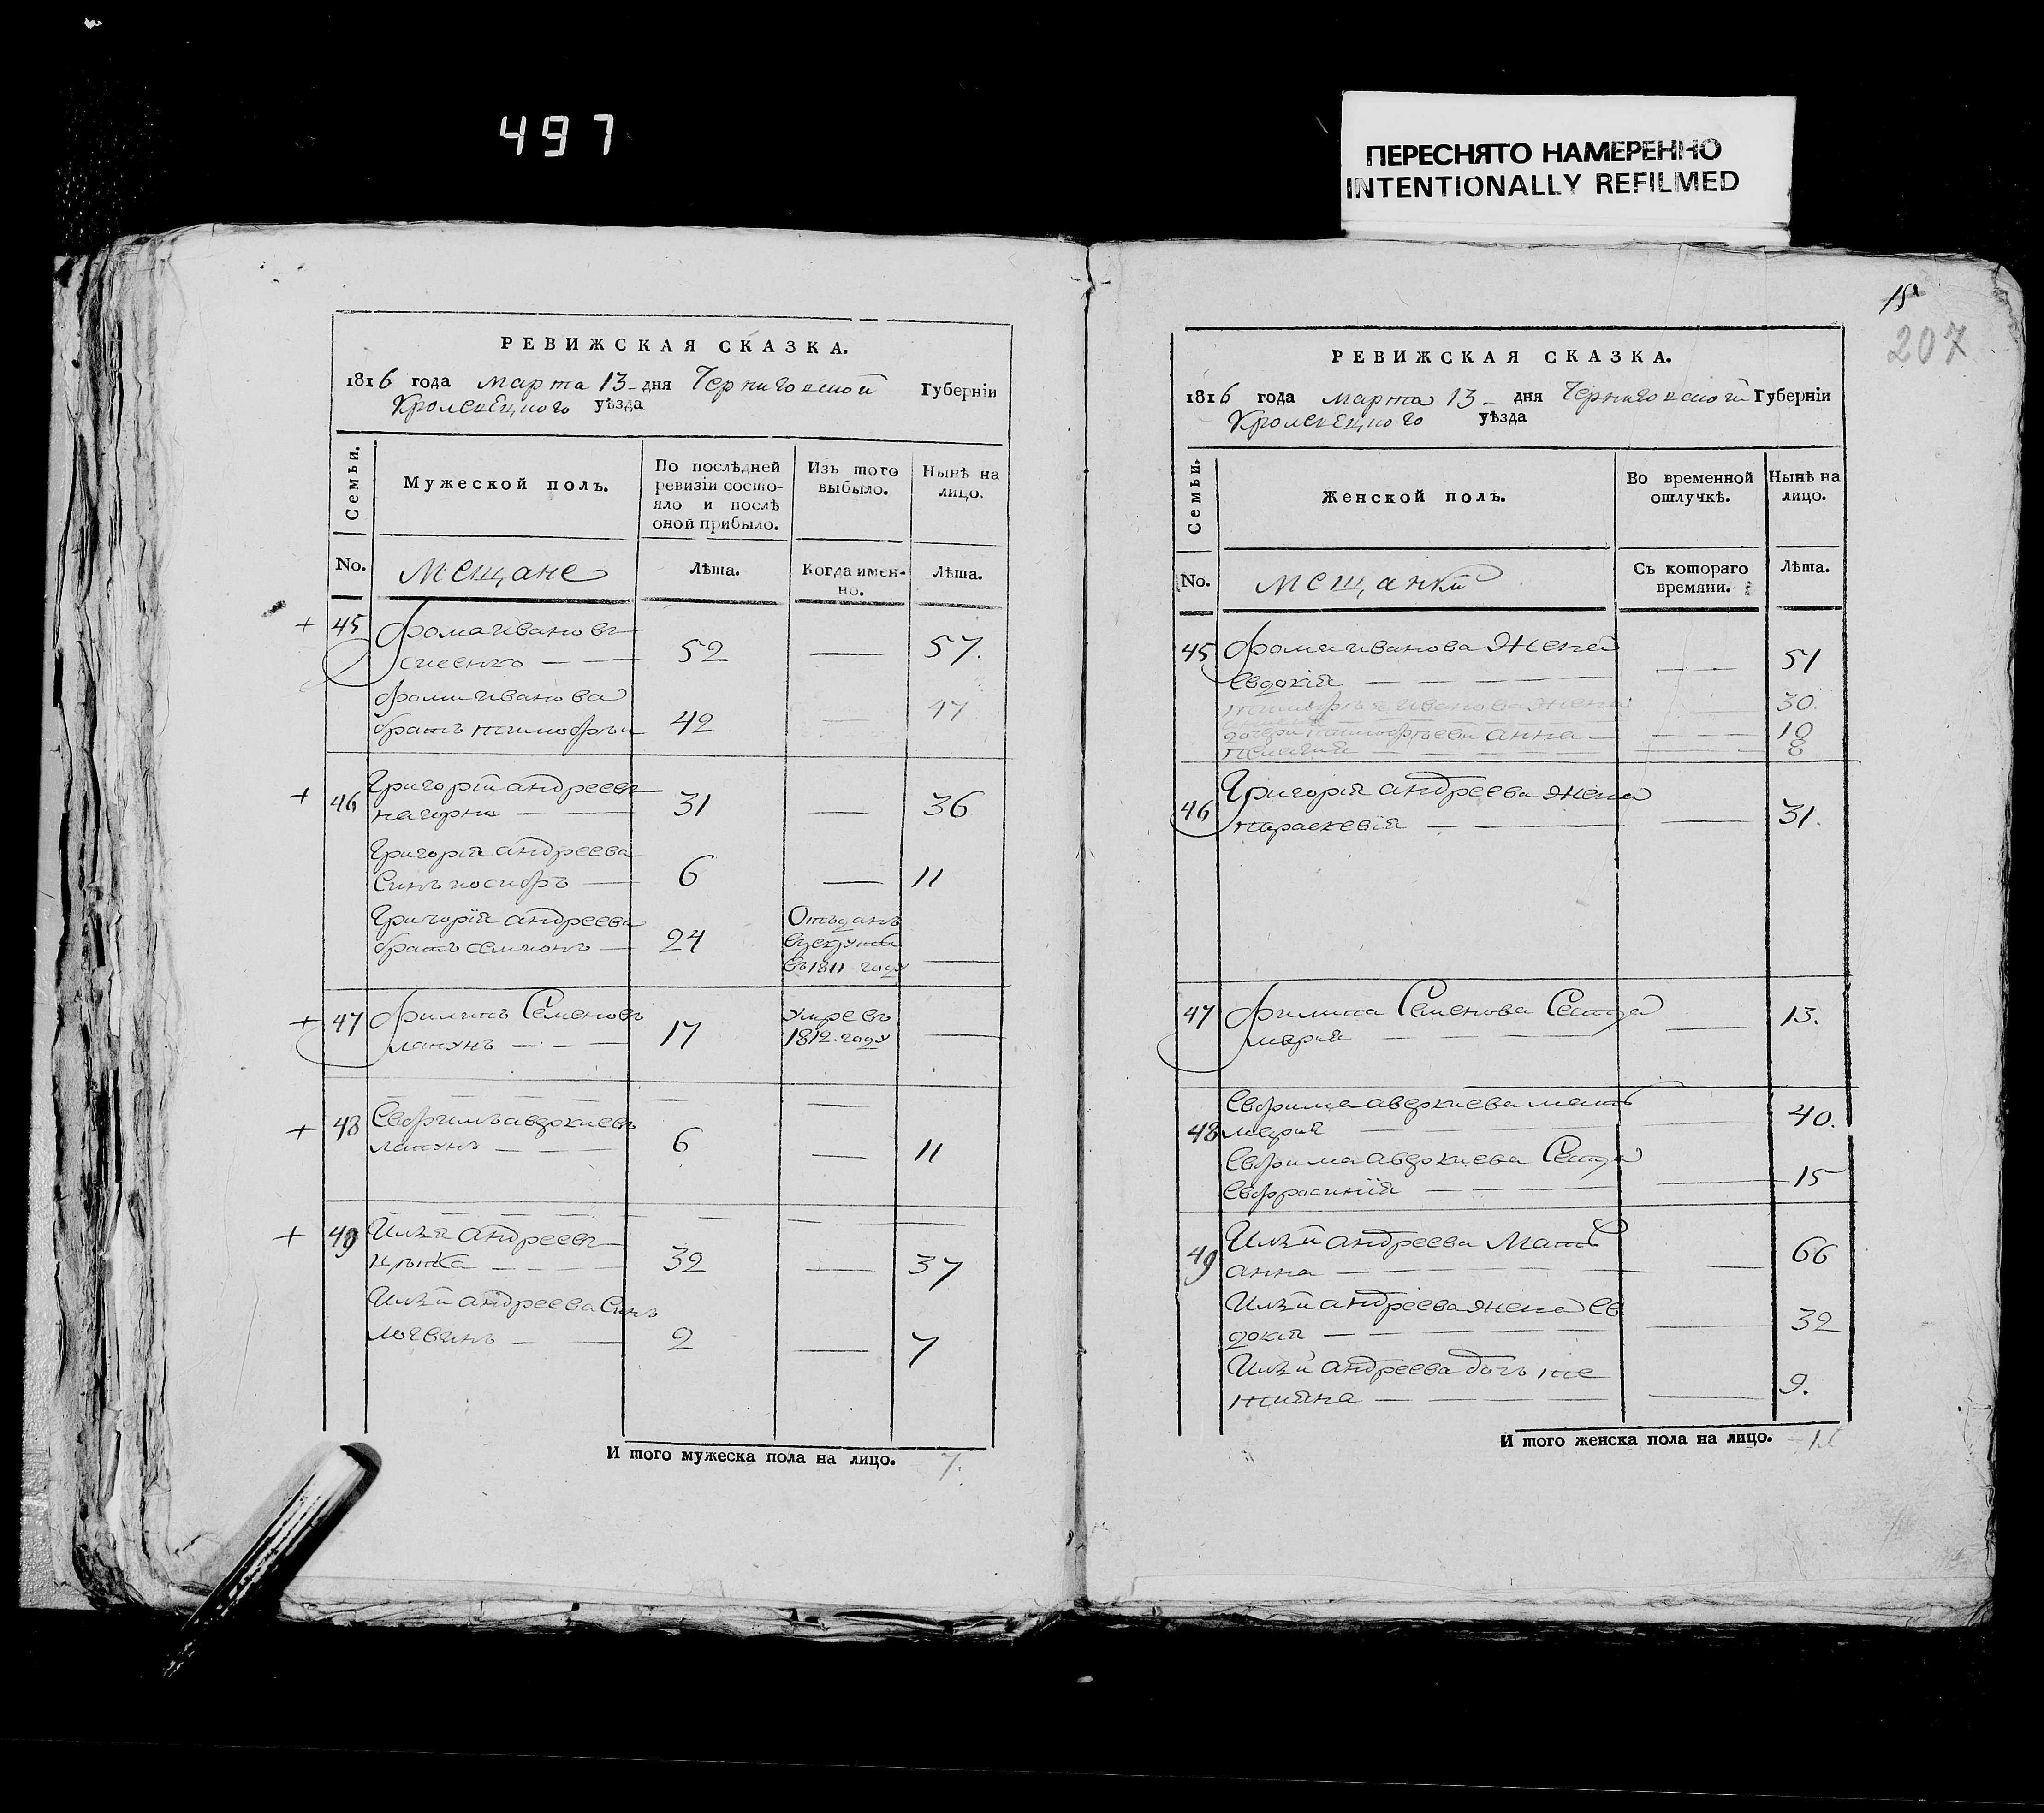 497
ПЕРЕСНЯТО НАМЕРЕННО
INTENTIONALLY REFILMED
РЕВИЖСКАЯ СКАЗКА.
1816 года марта 13 дня Черниговской Губерніи
Кролевецкого уѣзда
Семьи.
Мужеской полъ.
По послѣдней
ревизіи состо-
яло и послѣ
оной прибыло.
Изъ того
выбыло.
Нынѣ на
лицо.
No.
Мещане
Лѣта.
Когда имен-
но.
Лѣта.
45 Фома Ивановъ
52 — 57.
Фоми Иванова
братъ тимофѣи 42 — 47
46 Григорій андреевъ
31 — 36
Григорія андреева
Синъ иосифъ — 6 — 11
Григорія андреева
братъ семионъ — 24
Отъданъ
в рекруты
въ 1811 году —
47 Филипъ Семеновъ
лапунъ — 17
умре въ
1812 году —
48 Евфимъ авдкиевъ
лапунъ — 6 — 11
49 Илія андреевъ
32 — 37
Иліи андреева Синъ
логвинъ — 2 — 7
И того мужеска пола на лицо. 7.
15
207
РЕВИЖСКАЯ СКАЗКА.
1816 года марта 13 дня Черниговской Губерніи
Кролевецкого уѣзда
Семьи.
Женской полъ.
Во временной
отлучкѣ.
Нынѣ на
лицо.
No.
мещанки
Съ котораго
времяни.
Лѣта.
45 Фоми иванова Жена
Евдокія — 51
тимофѣя иванова жена
30.
дочери тимофѣеви анна — 10
8
46 Григорія андреева жена
параскевія — 31.
47 Филипа Семенова Сестра
марія — 13.
48 Евфима авдкиева мать
марія — 40.
Евфима авдкиева Сестра
Евфросинія — 15
49 Иліи андреева Мать
анна — 66
Иліи андреева жена Ев
докія — 32
Иліи андреева дочь
9.
И того женска пола на лицо.